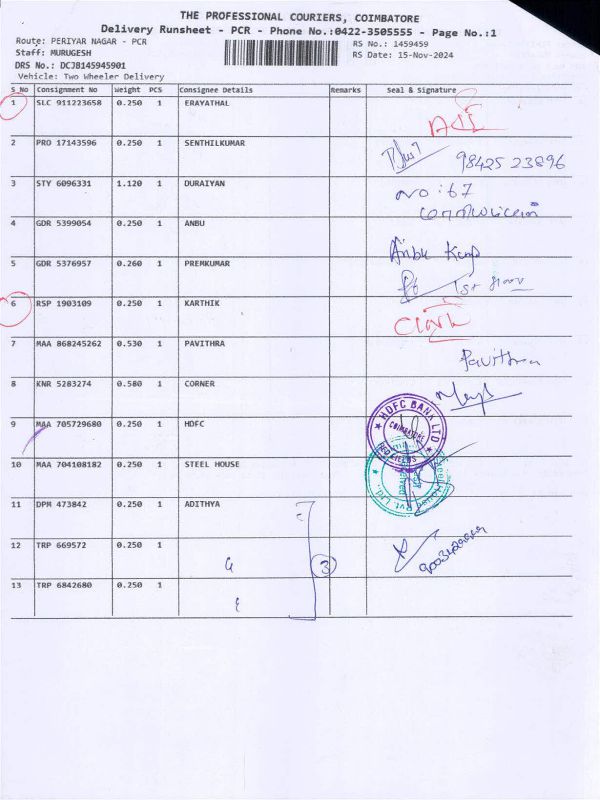 THE PROFESSIONAL COURIERS, COIMBATORE
Delivery Runsheet - PCR - Phone No.:0422-3505555 - Page No.:1
Route: PERIYAR NAGAR - PCR
RS No.: 1459459
Staff: MURUGESH
RS Date: 15-Nov-2024
DRS No.: DCJB145945901
Vehicle: Two Wheeler Delivery
S_No Consignment No Weight PCS Consignee Details Remarks Seal & Signature
1 SLC 911223658 0.250 1 ERAYATHAL
2 PRO 17143596 0.250 1 SENTHILKUMAR 98425 23896
3 STY 6096331 1.120 1 DURAIYAN NO:67
4 GDR 5399054 0.250 1 ANBU Anbu
5 GDR 5376957 0.260 1 PREMKUMAR 1st floor
6 RSP 1903109 0.250 1 KARTHIK
7 MAA 868245262 0.530 1 PAVITHRA Pavithra
8 KNR 5283274 0.580 1 CORNER
9 MAA 705729680 0.250 1 HDFC HDFC BANK LTD COIMBATORE
10 MAA 704108182 0.250 1 STEEL HOUSE Pvt. Ltd.
11 DPM 473842 0.250 1 ADITHYA
12 TRP 669572 0.250 1 3
13 TRP 6842680 0.250 1